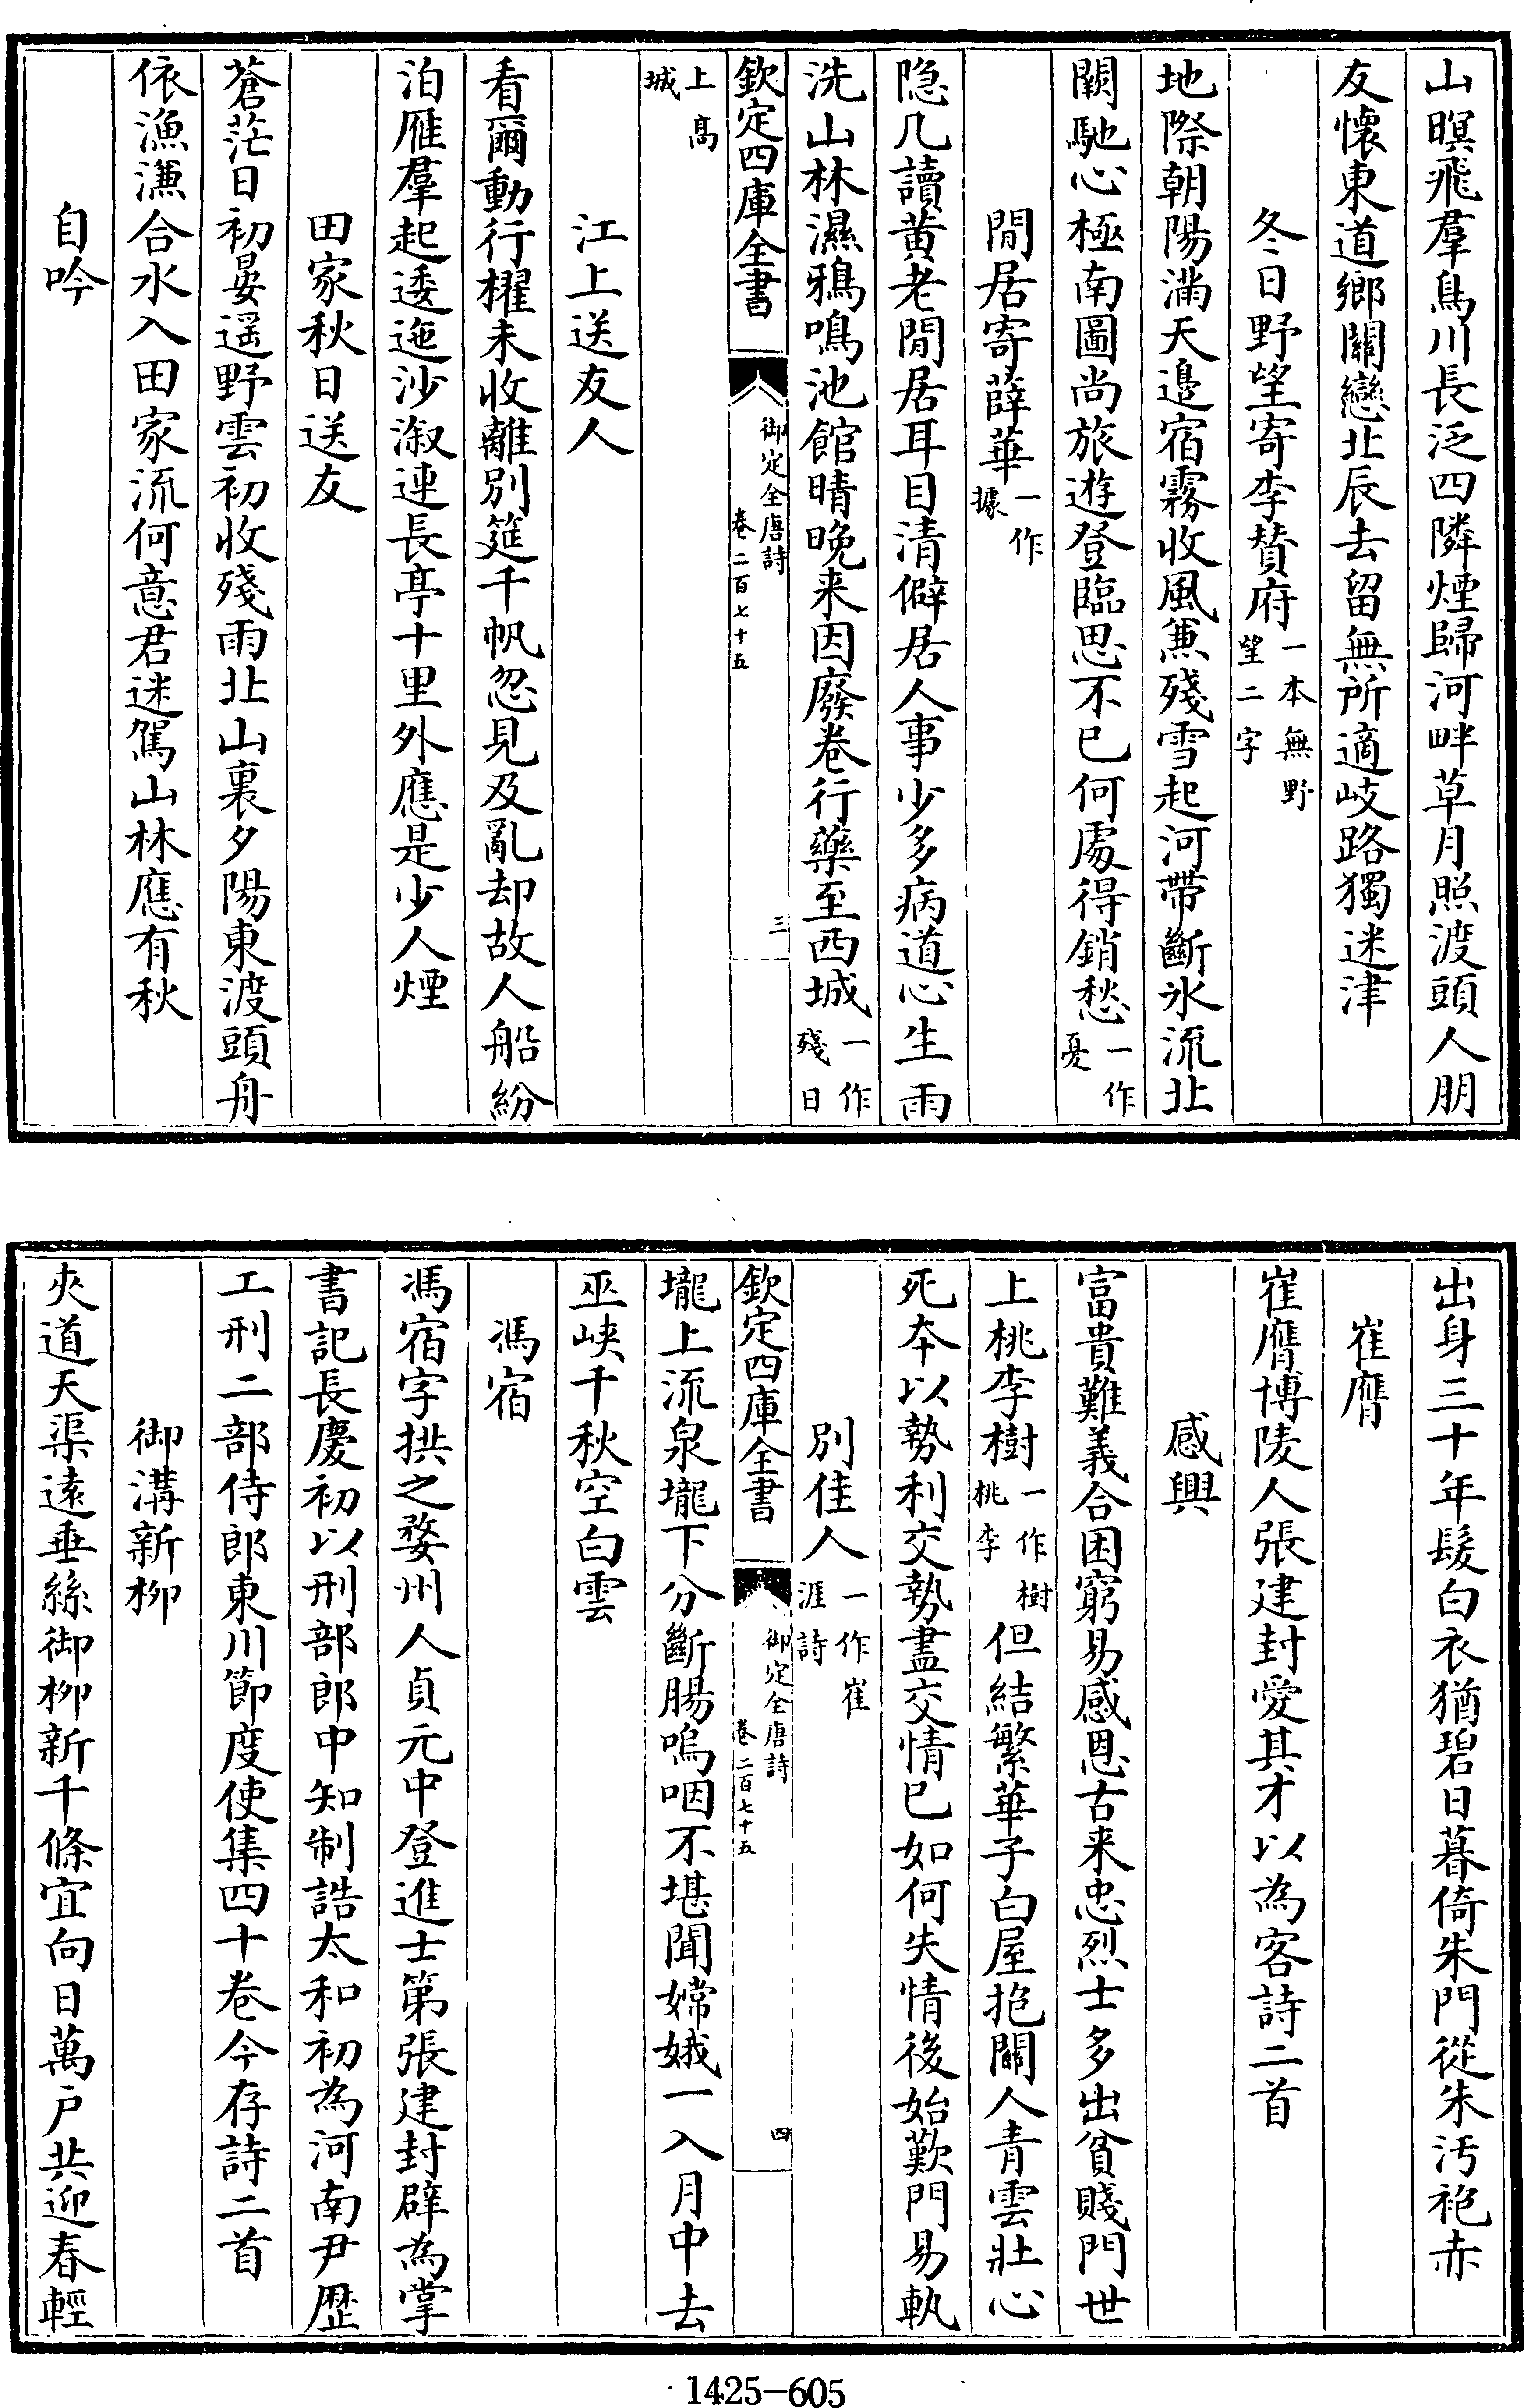 山暝飛羣鳥川長泛四隣煙歸河畔草月照渡頭人朋
友懷東道鄉關戀北辰去留無所適岐路獨迷津
冬日野望寄李贊府一本無野望二字
地際朝陽滿天邊宿霧收風兼殘雪起河帶斷氷流北
闕馳心極南圖尚旅遊登臨思不已何處得銷愁一作憂
閒居寄薛華一作據
隐几讀黃老閒居耳目清僻居人事少多病道心生雨
洗山林濕鴉鳴池館晴晚来因廢卷行藥至西城一作殘日
欽定四庫全書
御定全唐詩
卷二百七十五
三
上高城
江上送友人
看爾動行櫂未收離別筵千帆忽見及亂却故人船紛
泊雁羣起逶迤沙漵連長亭十里外應是少人煙
田家秋日送友
蒼茫日初晏遥野雲初收殘雨北山裏夕陽東渡頭舟
依漁溓合水入田家流何意君迷駕山林應有秋
自吟
出身三十年髮白衣猶碧日暮倚朱門從朱汚袍赤
崔膺
崔膺博陵人張建封愛其才以為客詩二首
感興
富貴難義合困窮易感恩古来忠烈士多出貧賤門世
上桃李樹一作樹桃李但結繁華子白屋抱關人青雲壯心
死本以勢利交勢盡交情已如何失情後始歎門易軌
別佳人一作崔涯詩
欽定四庫全書
御定全唐詩
卷二百七十五
四
壠上流泉壠下分斷腸嗚咽不堪聞嫦娥一入月中去
巫峽千秋空白雲
馮宿
馮宿字拱之婺州人貞元中登進士第張建封辟為掌
書記長慶初以刑部郎中知制誥太和初為河南尹歴
工刑二部侍郎東川節度使集四十卷今存詩二首
御溝新柳
夾道天渠遠垂絲御柳新千條宜向日萬戶共迎春輕
1425-605